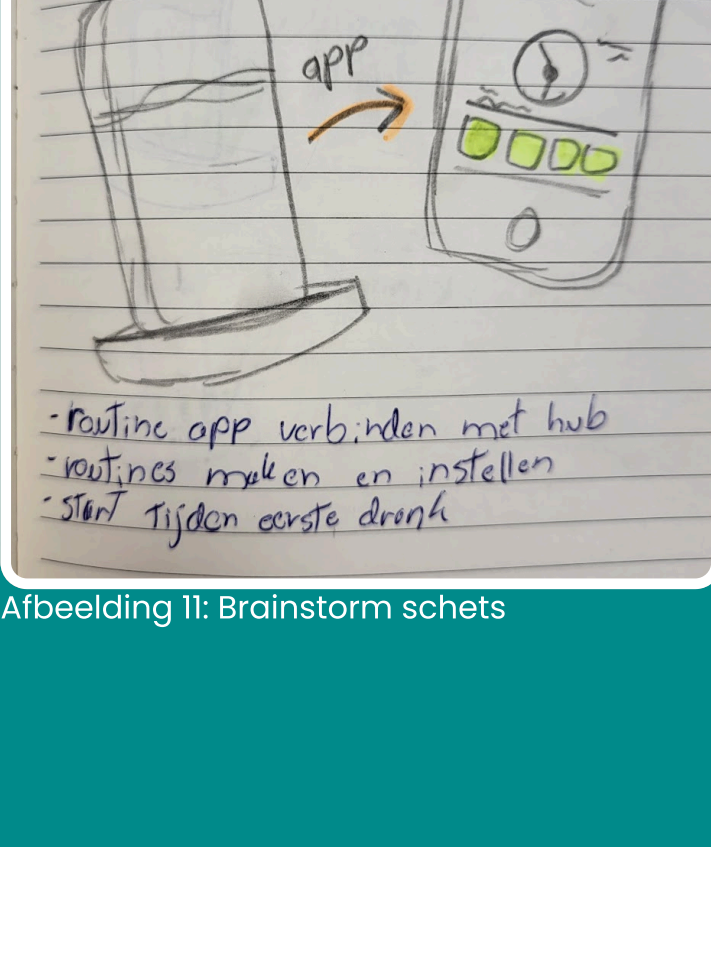 app
- routine app verbinden met hub
- routines maken en instellen
- start tijden eerste dronk
Afbeelding 11: Brainstorm schets